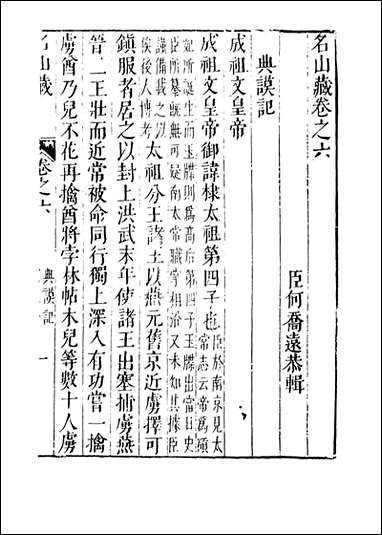 名山藏卷之六
臣何喬遠恭輯
典謨記
成祖文皇帝
成祖文皇帝御諱棣太祖第四子也
臣於南京見太
常志云帝爲碩
妃所誕生而玉牒則爲高后第四子玉牒出當日史
臣所纂旣無可疑南太常職掌相沿又未知其據臣
謹備載之以
俟後人博考
太祖分王諸王以燕元舊京近虜擇可
鎮服者居之以封上洪武末年使諸王出塞捕虜燕
晉二王壯而近常被命同行獨上深入有功嘗一擒
虜酋乃兒不花再擒酋將孛林帖木兒等數十人虜
名山藏
卷之六
典謨記
一